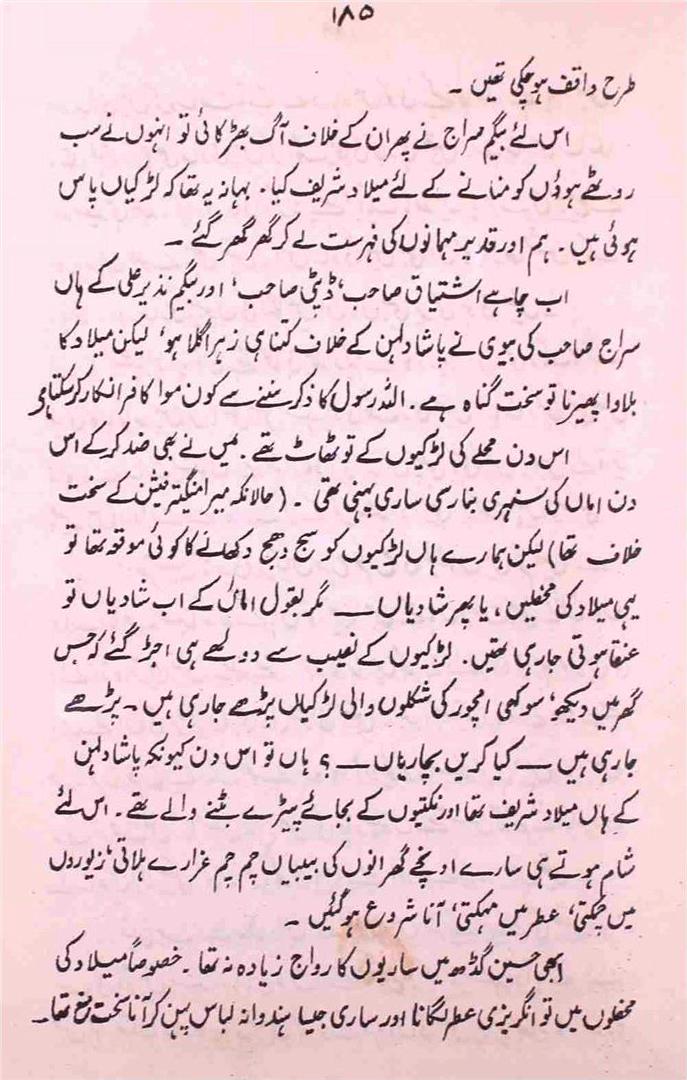 ۱۸۵
طرح واقف ہو چکی تھیں ۔
اس لئے بیگم سراج نے پھر ان کے خلاف آگ بھڑکائی تو انہوں نے سب
روٹھے ہوؤں کو منانے کے لئے میلاد شریف کیا۔ بہانہ یہ تھا کہ لڑکیاں پاس
ہوئی ہیں۔ ہم اور قدیر مہمانوں کی فہرست لے کر گھر گھر گئے ۔
اب چاہے اشتیاق صاحب، ڈپٹی صاحب، اور بیگم نذیر علی کے ہاں
سراج صاحب کی بیوی نے پاشا دلہن کے خلاف کتنا ہی زہر اگلا ہو، لیکن میلاد کا
بلاوا پھیرنا تو سخت گناہ ہے۔ اللہ رسول کا ذکر سننے سے کون موا کافر انکار کر سکتا ہے
اس دن محلے کی لڑکیوں کے تو ٹھاٹ تھے۔ میں نے بھی ضد کر کے اس
دن اماں کی سنہری بنارسی ساری پہنی تھی ۔ (حالانکہ میرا منگیتر فیشن کے سخت
خلاف تھا) لیکن ہمارے ہاں لڑکیوں کو سج دھج دکھانے کا کوئی موقعہ تھا تو
یہی میلاد کی محفلیں، یا پھر شادیاں ــــ مگر بقول اماں کے اب شادیاں تو
عنقا ہوتی جا رہی تھیں۔ لڑکیوں کے نصیب سے دولھے ہی اجڑ گئے کہ جس
گھر میں دیکھو، سوکھی امچور کی شکلوں والی لڑکیاں پڑھے جا رہی ہیں ۔ پڑھے
جا رہی ہیں ــــ کیا کریں بچاریاں ــــ ؟ ہاں تو اس دن کیونکہ پاشا دلہن
کے ہاں میلاد شریف تھا اور نکتیوں کے بجائے پیڑے بٹنے والے تھے۔ اس لئے
شام ہوتے ہی سارے اونچے گھرانوں کی بیبیاں چم چم غرارے ہلاتی، زیوروں
میں چمکتی، عطر میں مہکتی، آنا شروع ہو گئیں ۔
ابھی حسین گڈھ میں ساریوں کا رواج زیادہ نہ تھا ۔ خصوصاً میلاد کی
محفلوں میں تو انگریزی عطر لگانا اور ساری جیسا ہندوانہ لباس پہن کر آنا سخت منع تھا۔